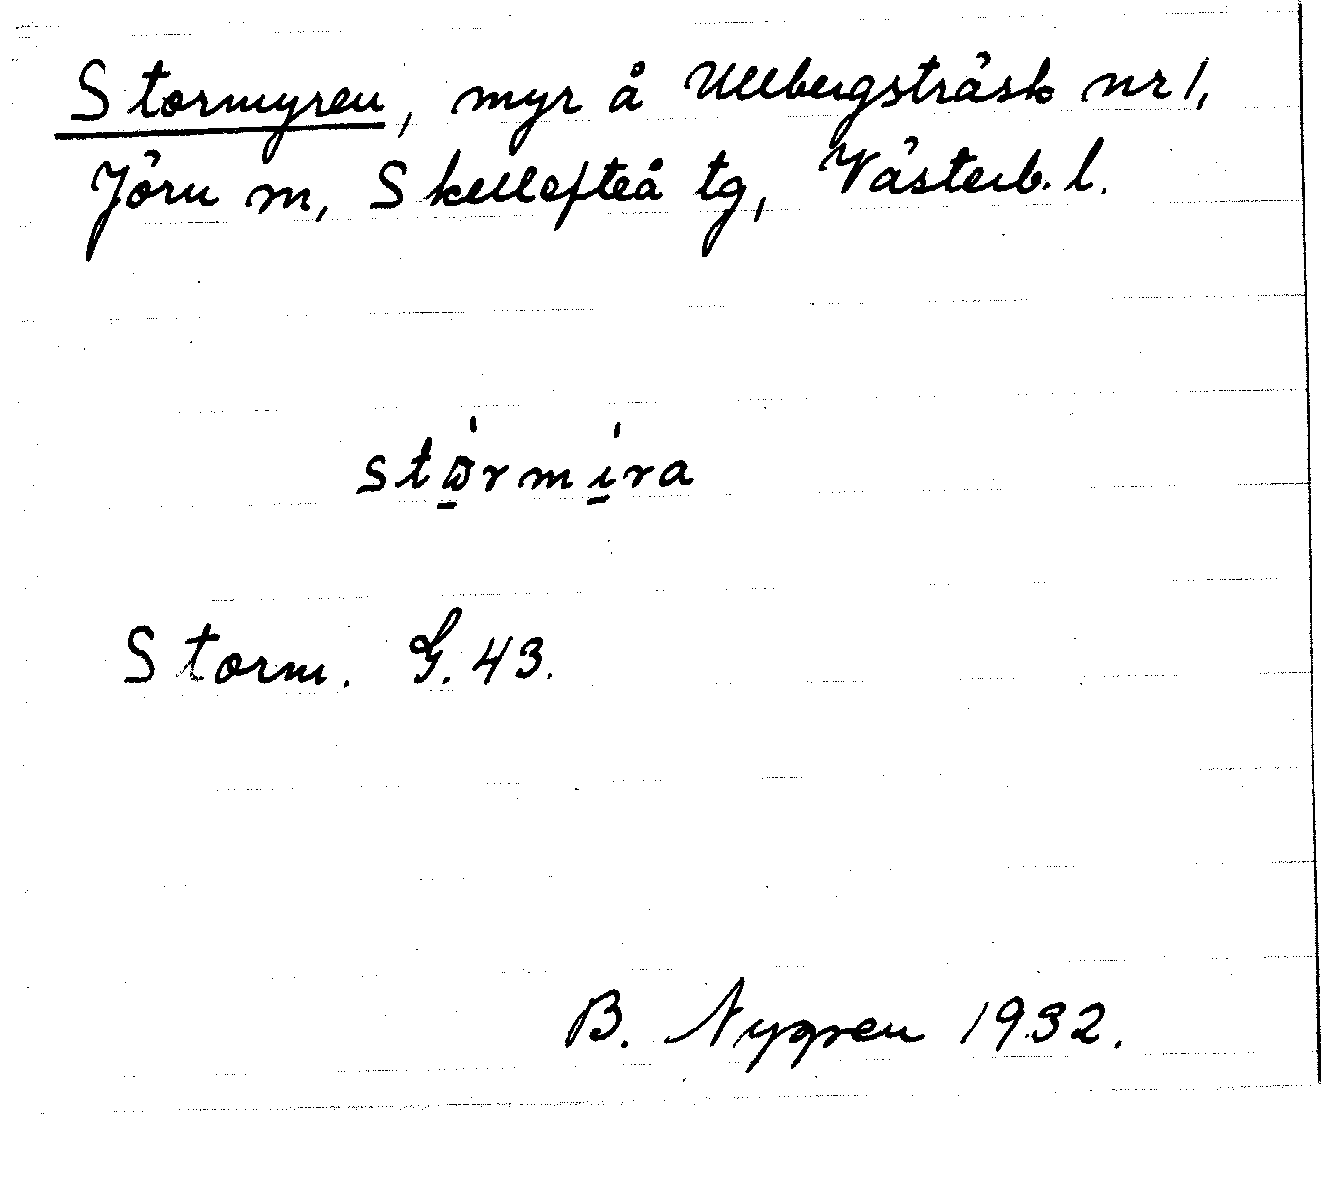 Stormyren, myr å Ullbergsträsk nr 1,
Jörn m, Skellefteå tg, Västerb. l.
stὼ̲rmı̲̀ra
Storm. G. 43.
B. Nygren 1932.